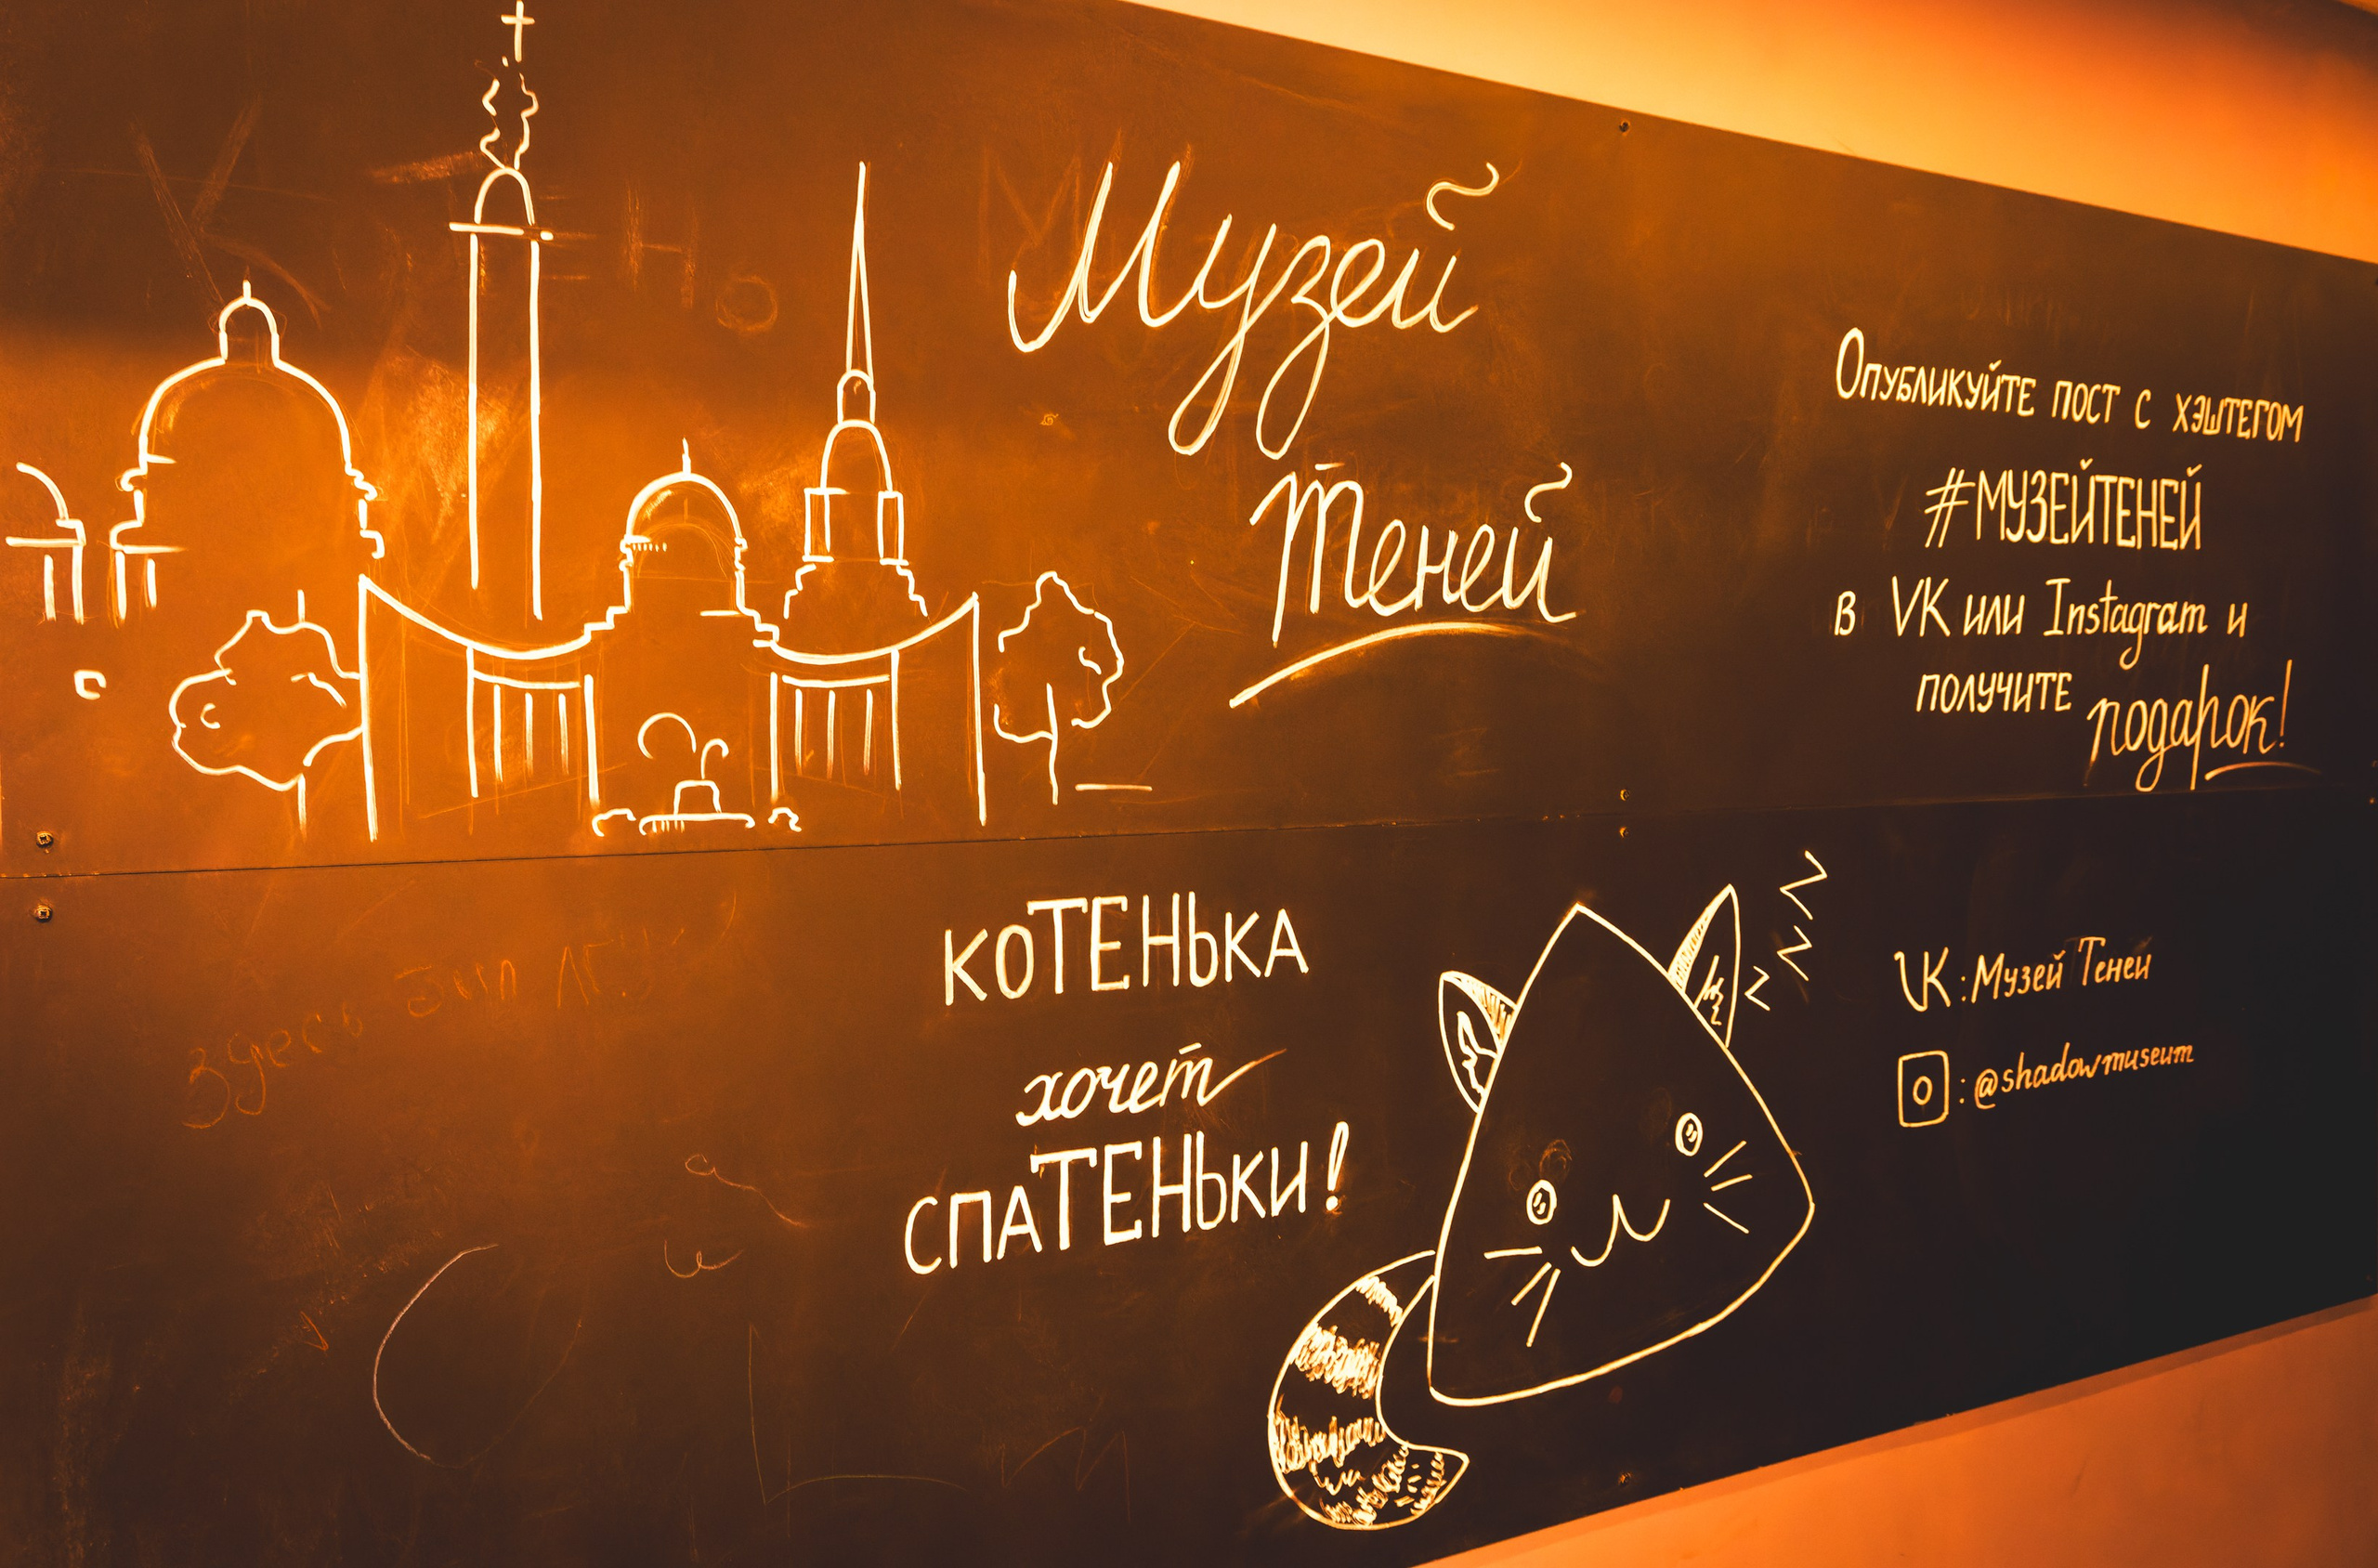 Музей
Теней
Опубликуйте пост с хэштегом
#МУЗЕЙТЕНЕЙ
в VK или Instagram и
получите подарок!
КОТЕНЬКА
хочет
СПАТЕНЬКИ!
zzz
VK: Музей Теней
: @shadowmuseum
здесь был